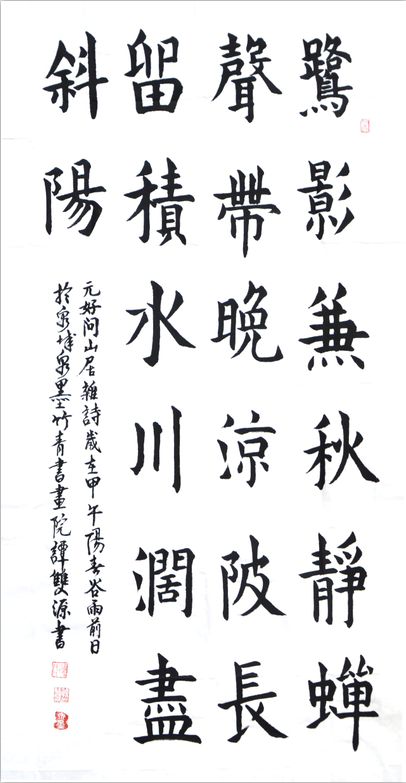 鷺影兼秋靜蟬
聲帶晚涼陂長
留積水川濶盡
斜陽
元好问山居雜詩歲在甲午陽春谷雨前日
於泉城泉墨竹青書畫院譚雙源書